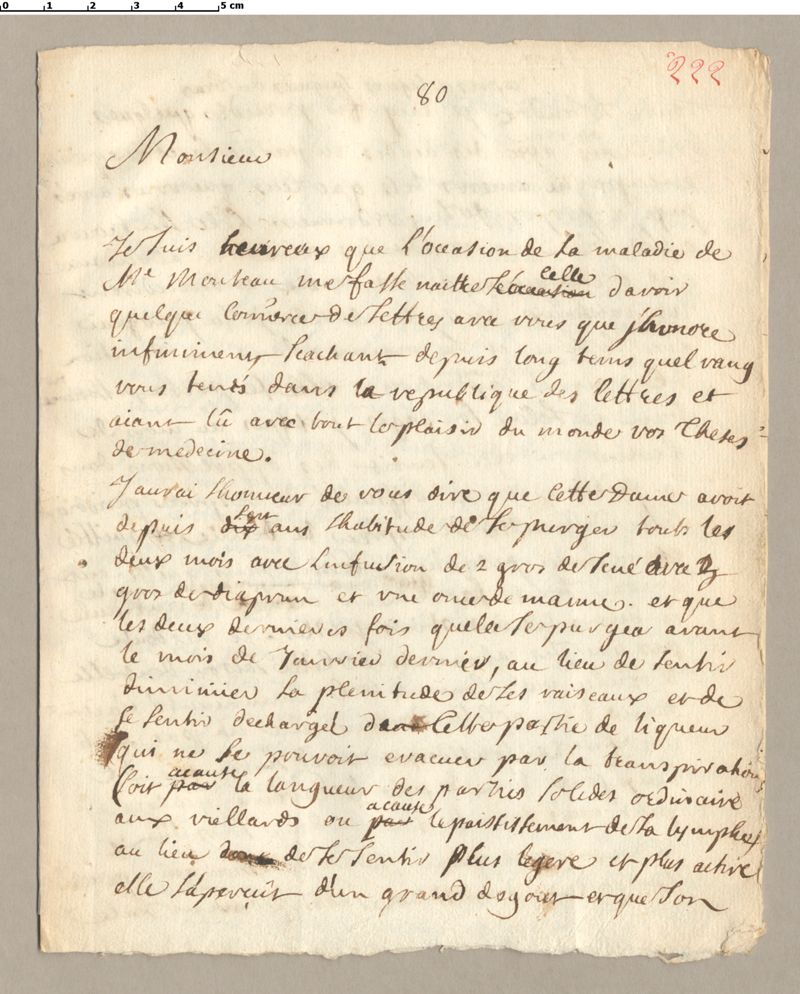 0 1 2 3 4 5 cm
222
80
Monsieur
Je suis heureux que l'occasion de la maladie de
Me Monteau me fasse naitre l'occasion celle d'avoir
quelque commerce de lettres avec vous que j'honore
infiniment scachant depuis long tems quel rang
vous tenés dans la republique des lettres et
aiant lû avec tout le plaisir du monde vos Theses
de medecine.
J'aurai l'honneur de vous dire que cette Dame avoit
depuis dix sept ans l'habitude de se purger touts les
deux mois avec l'infusion de 2 gros de sené avec 2
gros de diaprun et une once de manne. et que
les deux dernieres fois quelle se purgea avant
le mois de Janvier dernier, au lieu de sentir
diminüer la plenitude de ses vaiseaux et de
se sentir dechargée dans cette partie de liqueur
qui ne se pouvoit evacuer par la transpiration
soit par acause la langueur des parties solides ordinaire
aux viellards ou par acause l'epaississement de la lymphe
au lieu donc de se sentir plus legere et plus active
elle s'aperçût d'un grand degout et que son